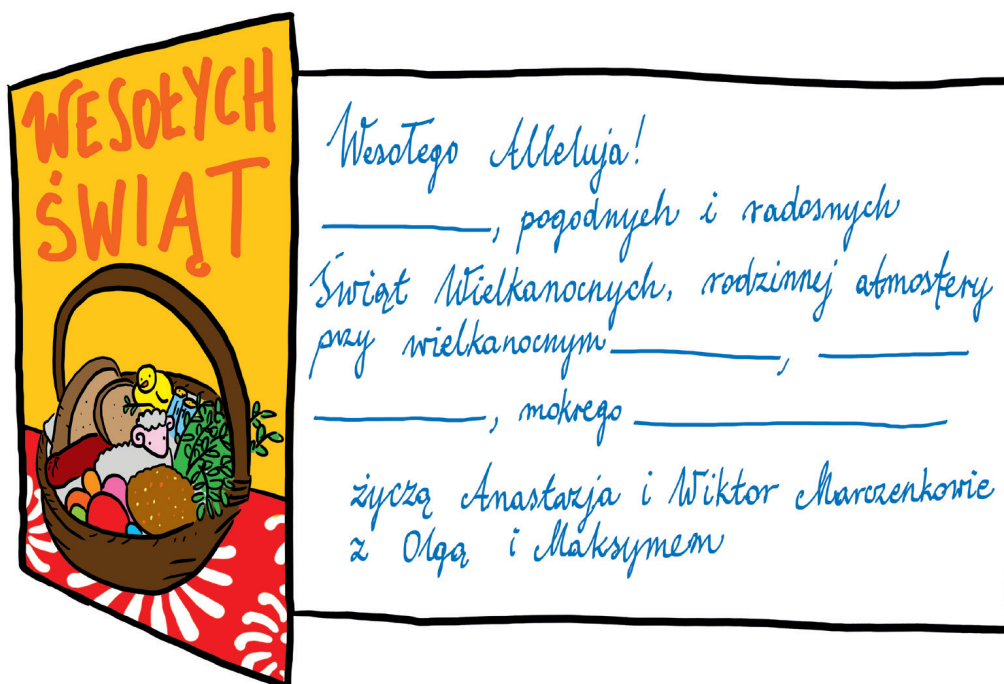 WESOŁYCH
ŚWIĄT
Wesołego Alleluja!
__________, pogodnych i radosnych
Świąt Wielkanocnych, rodzinnej atmosfery
przy wielkanocnym __________, __________
__________, mokrego __________________
życzą Anastazja i Wiktor Marczenkowie
z Olgą i Maksymem